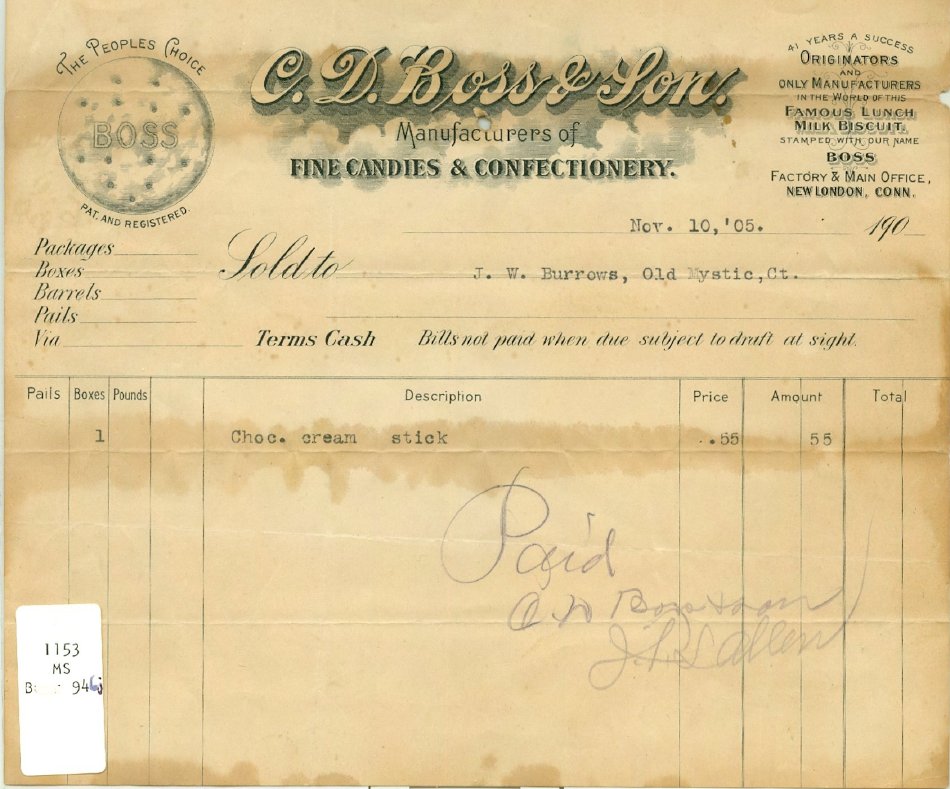 THE PEOPLES CHOICE
BOSS
PAT. AND REGISTERED.
C. D. Boss & Son.
Manufacturers of
FINE CANDIES & CONFECTIONERY.
41 YEARS A SUCCESS
ORIGINATORS
AND
ONLY MANUFACTURERS
IN THE WORLD OF THIS
FAMOUS LUNCH
MILK BISCUIT.
STAMPED WITH OUR NAME
BOSS
FACTORY & MAIN OFFICE,
NEW LONDON, CONN.
Nov. 10,'05. 190
Packages
Boxes
Barrels
Pails
Via
Sold to J. W. Burrows, Old Mystic, Ct.
Terms Cash Bills not paid when due subject to draft at sight.
Pails Boxes Pounds Description Price Amount Total
1 Choc. cream stick .55 55
Paid
C. D. Boss & Son
Allen
1153
MS